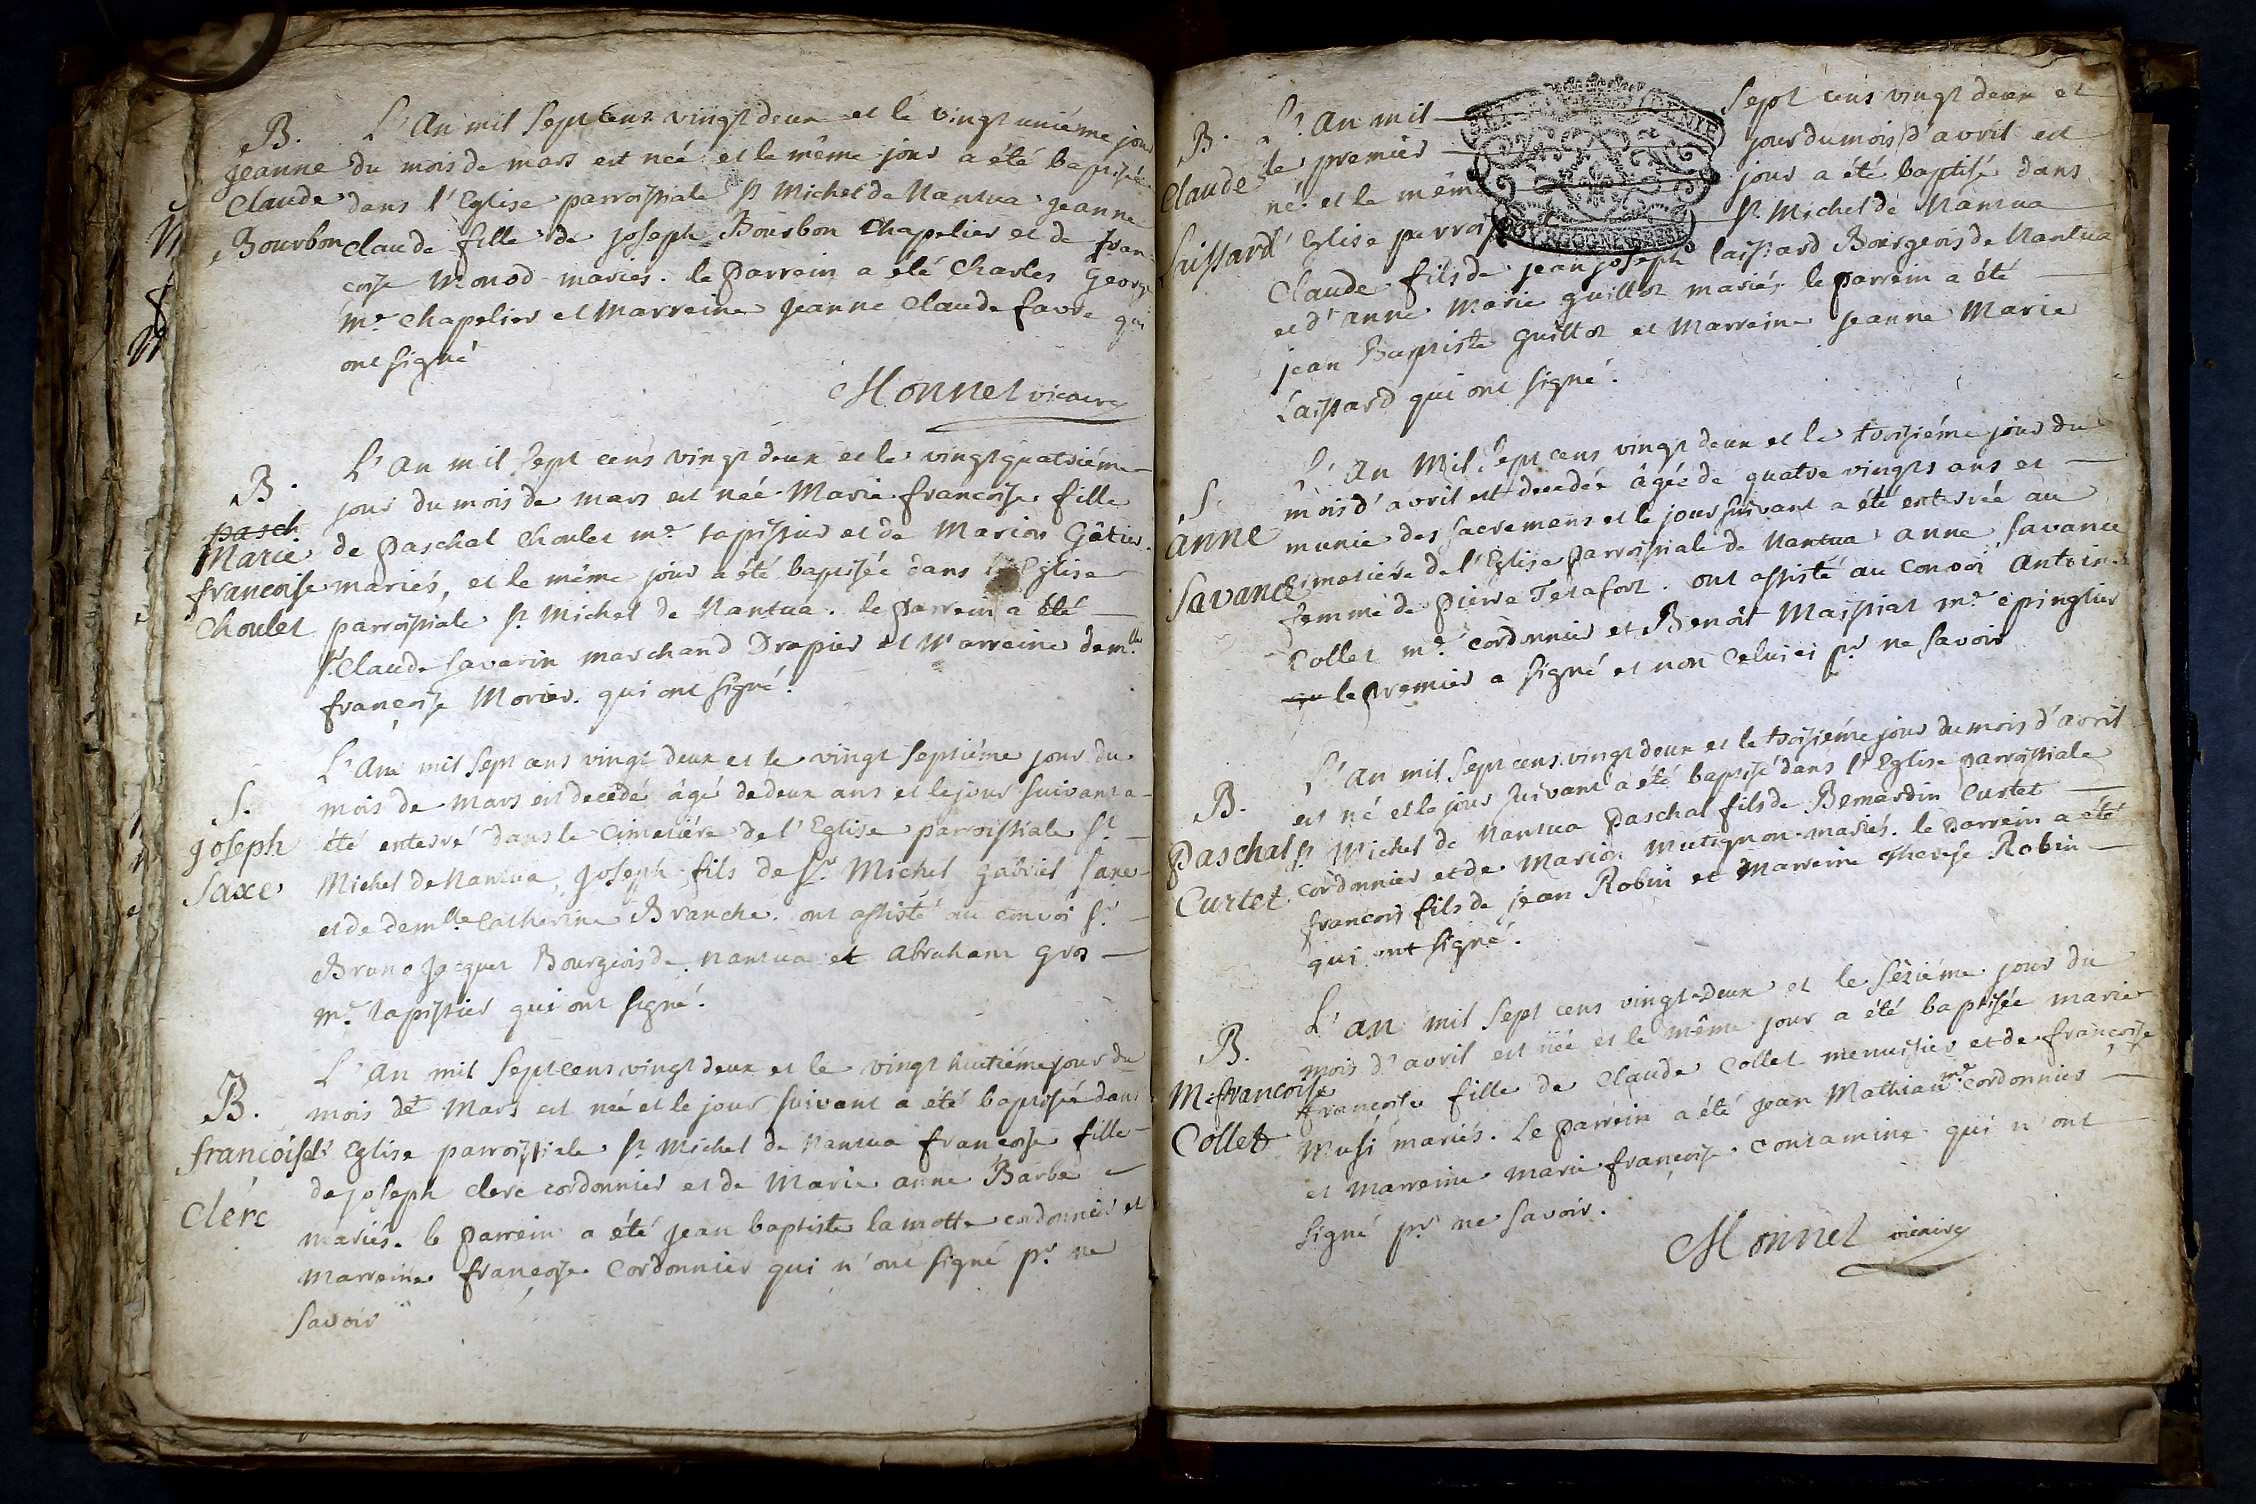 B. L'An mil Sept cens vingt deux et le vingt uniéme jour
jeanne du mois de mars est neé et le même jour a été baptisée
Claude dans l'Eglise parroissiale St Michel de Nantua jeanne
Bourbon Claude fille de joseph Bourbon Chapelier et de fran-
coise Monod mariés. le Parrein a été Charles George
me. Chapelier et Marreine jeanne Claude favre qui
ont signé
Monnet vicaire
B. L'An mil Sept cens vingt deux et le vingt quatriéme
jour du mois de mars est née Marie francoise fille
pasch
Marie de Paschal Choulet me. tapissier et de Marion Gâtier
francoise mariés, et le même jour a été baptisée dans l'Eglise
Choulet parroissiale St. Michel de Nantua. le Parrein a été
sr Claude Savarin marchand Drapier et Marreine demlle.
françoise Morier. qui ont signé.
L'An mil Sept cens vingt deux et le vingt septiéme jour du
S. mois de Mars est decedé âgé de deux ans et le jour suivant a
joseph été enterré dans le Cimetiére de l'Eglise parroissiale St
Saxe Michel de Nantua, joseph fils de Sr. Michel gabriel Saxe
et de demlle. Catherine Branche. ont assisté au convoi Sr.
Bruno jacquet Bourgeois de Nantua et Abraham gros
me. tapissier qui ont signé.
L'An mil Sept cens vingt deux et le vingt huitiéme jour du
B. mois de Mars est neé et le jour suivant a été baptisée dans
francoise l'Eglise parroissiale St. Michel de Nantua francoise fille
de joseph Clerc cordonnier et de Marie anne Barbe
Clerc mariés. le Parrein a été jean baptiste lamotte cordonnier et
Marreine françoise Cordonnier qui n'ont signé pr. ne
savoir
B. L'An mil Sept cens vingt deux et
Claude le premier jour du mois d'avril est
né et le même jour a été baptisé dans
Laissard l'Eglise parrois St. Michel de Nantua
Claude fils de jean joseph Laissard Bourgeois de Nantua
et d'anne Marie guillot mariés le Parrein a été
jean Baptiste Guillot et Marreine jeanne Marie
Laissard qui ont signé.
L'An Mil Sept cens vingt deux et le troisiéme jour du
S. mois d'avril est decedée âgée de quatre vingts ans et
anne munie des sacremens et le jour suivant a été enterrée au
Savance Cimetiere de l'Eglise parroissiale de Nantua anne Savance
femme de Pierre Terafort. ont assisté au convoi Antoine
Collet me. cordonnier et Benoit Maissiat me. epinglier
qu le premier a signé et non celui ci pr. ne savoir
L'An mil Sept cens vingt deux et le troisiéme jour du mois d'avril
B. est né et le jour suivant a été baptisé dans l'Eglise parroissiale
Paschal St. Michel de Nantua Paschal fils de Bernardin Curtet
Curtet cordonnier et de Marion mutignon mariés. le Parrein a été
francois fils de jean Robin et Marreine Therese Robin
qui ont signé.
L'an mil Sept cens vingt-Deux et le séziéme jour du
B. mois d'avril est née et le même jour a été baptisée marie
M. francoise francoise fille de Claude Collet menuisier et de francoise
Collet Mussi mariés. Le Parrein a été jean Mathieu me. cordonnier
et Marreine Marie françoise Contamine qui n'ont
signé pr. ne savoir.
Monnet vicaire